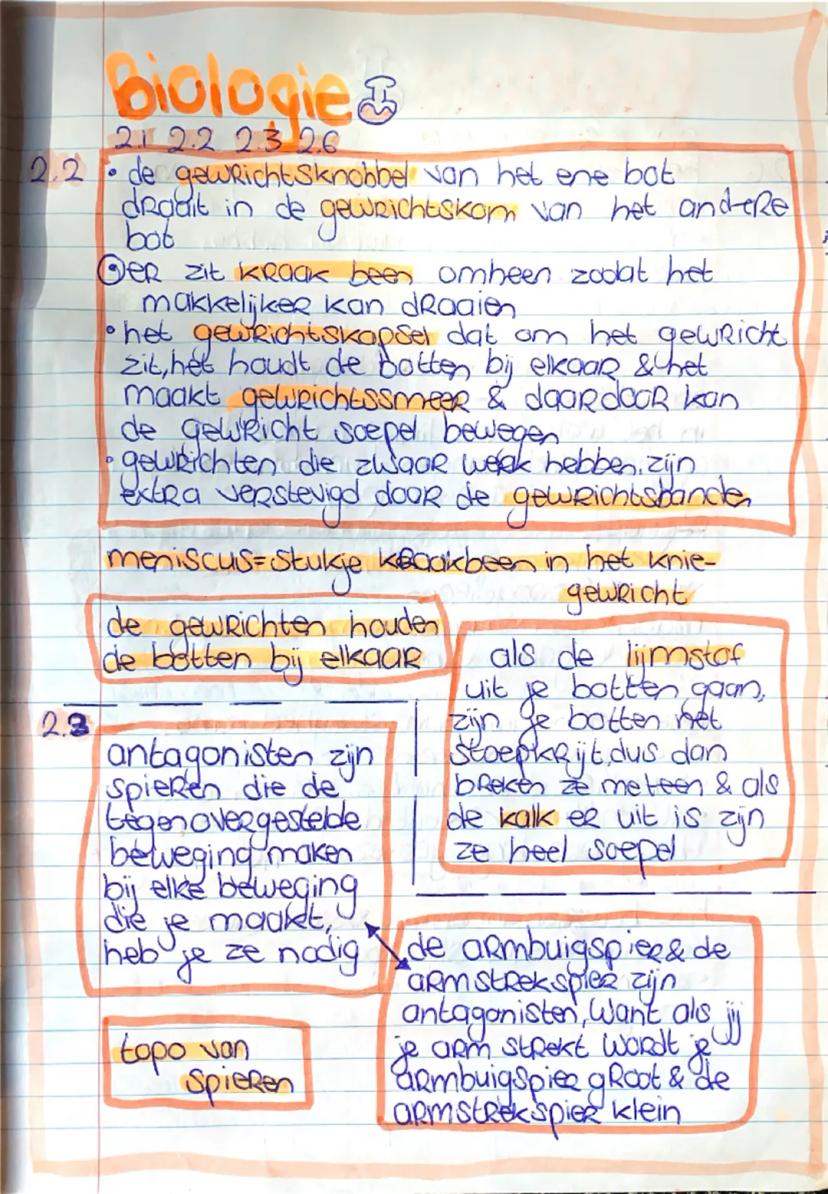 Biologie
2.1 2.2 2.3 2.6
2.2
• de gewrichtsknobbel van het ene bot
draait in de gewrichtskom van het andere
bot
• er zit kraak been omheen zodat het
makkelijker kan draaien
• het gewrichtskapsel dat om het gewricht
zit, het houdt de botten bij elkaar & het
maakt gewrichtssmeer & daardoor kan
de gewricht soepel bewegen
• gewrichten die zwaar werk hebben, zijn
extra verstevigd door de gewrichtsbanden
meniscus = stukje kraakbeen in het knie-
gewricht
de gewrichten houden
de botten bij elkaar
als de lijmstof
uit je botten gaan,
zijn je botten net
stoepkrijt, dus dan
breken ze meteen & als
de kalk er uit is zijn
ze heel soepel
2.3
antagonisten zijn
spieren die de
tegenovergestelde
beweging maken
bij elke beweging
die je maakt,
heb je ze nodig
de armbuigspier & de
armstrekspier zijn
antagonisten, want als jij
je arm strekt wordt je
armbuigspier groot & de
armstrekspier klein
topo van
spieren